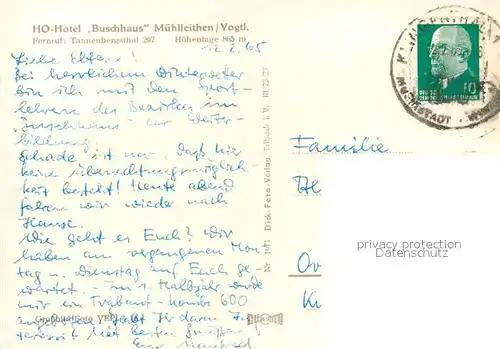 HO-Hotel „Buschhaus" Mühlleithen/Vogtl.
Fernruf: Tannenbergsthal 297 Höhenlage 865 m
12.2.65
Liebe Eltern!
Bei herrlichem Winterwetter
bin ich mit den Sport-
lehrern des Bezirkes im
"Buschhaus" zur Weiter-
bildung.
Schade ist nur, daß hier
keine Übernachtungsmöglich-
keit besteht! Heute abend
fahren wir wieder nach
Hause.
Wie geht es Euch? Wir
haben am vergangenen Mon-
tag u. Dienstag auf Euch ge-
wartet. - Im 1. Halbjahr wurde
mir ein Trabant-Kombi 600
angeboten. Habt Ihr daran Inte-
resse? Mit besten Grüßen!
Euer Manfred
Großbildfoto
Dick-Foto-Verlag, Erlbach i. V.
KLINGENTHAL 1
10
Familie
privacy protection
privacy protection